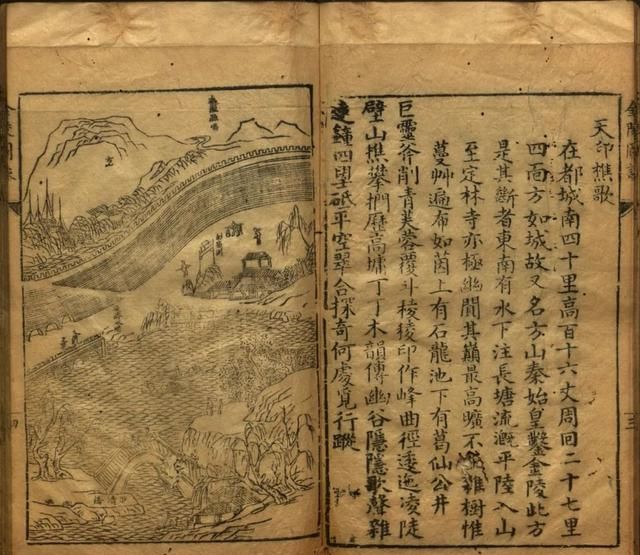 天印樵歌
在都城南四十里高百十六丈周回二十七里
四面方如城故又名方山秦始皇鑿金陵此方
是其斷者東南有水下注長塘流溉平陸入山
至定林寺亦極幽閒其巔最高曠不雜樹惟
蔓艸遍布如茵上有石龍池下有葛仙公井
巨靈斧削青芙蓉覆斗稜稜印作峰曲徑逶迤凌陡
壁山樵攀捫歷高墉丁丁木韻傳幽谷隱隱歌聲雜
遠鐘四望砥平空翠合探奇何處覓行蹤
三
四